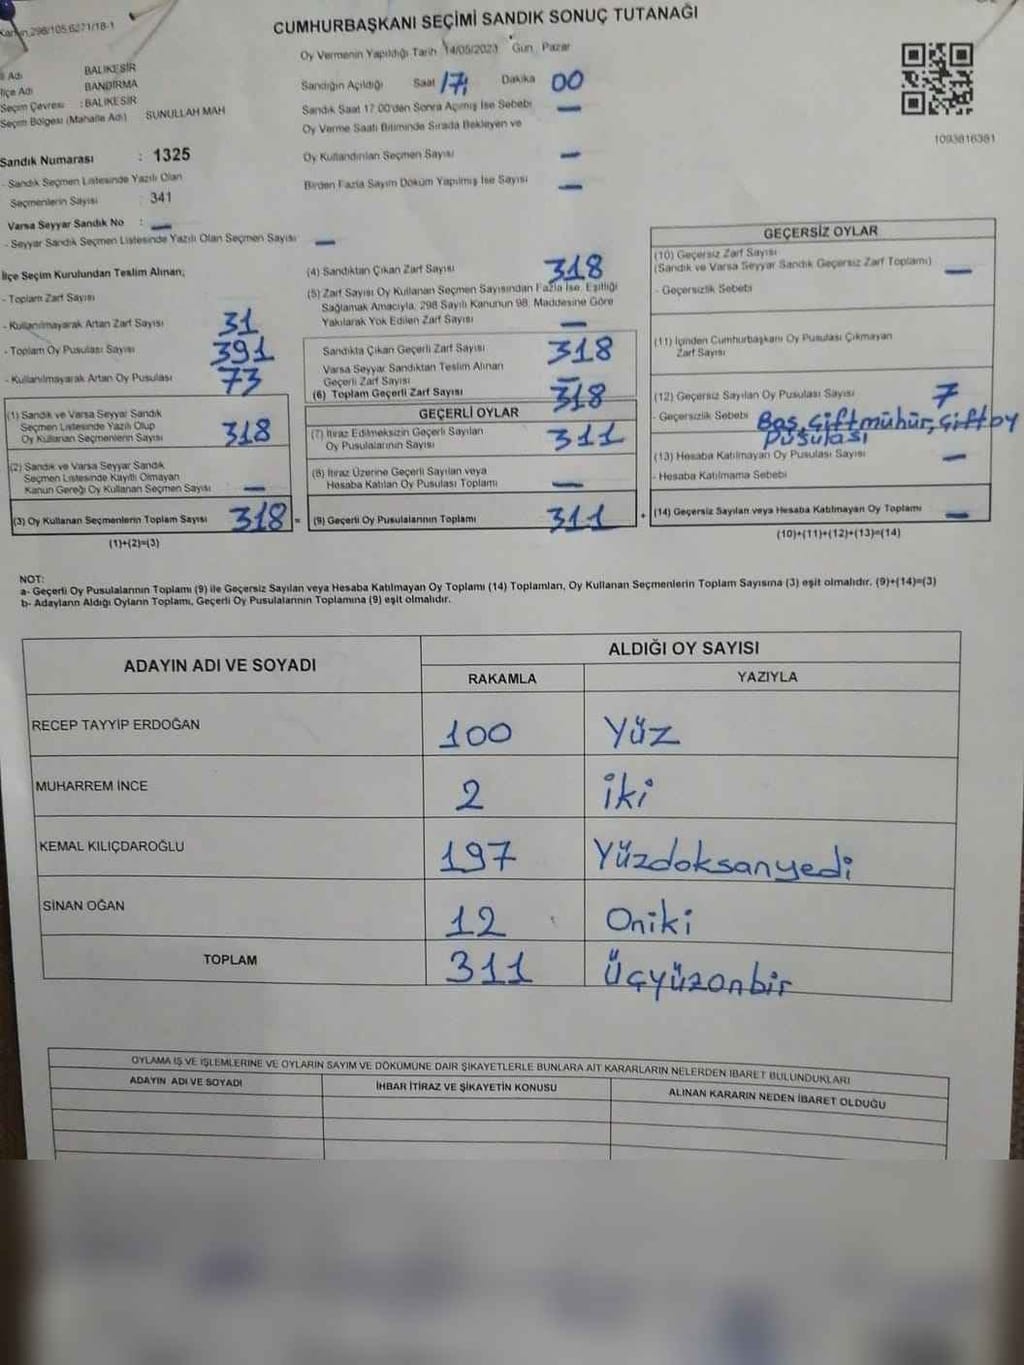 Kanun,298/105,6271/18-1
CUMHURBAŞKANI SEÇİMİ SANDIK SONUÇ TUTANAĞI
Oy Vermenin Yapıldığı Tarih 14/05/2023 Gün Pazar
İl Adı BALIKESİR
İlçe Adı BANDIRMA
Seçim Çevresi : BALIKESİR
Seçim Bölgesi (Mahalle Adı) SUNULLAH MAH
Sandığın Açıldığı Saat 17 Dakika 00
Sandık Saat 17.00'den Sonra Açımış İse Sebebi —
Oy Verme Saati Bitiminde Sırada Bekleyen ve
Oy Kullandırılan Seçmen Sayısı —
Birden Fazla Sayım Döküm Yapılmış İse Sayısı —
1093816381
Sandık Numarası : 1325
- Sandık Seçmen Listesinde Yazılı Olan
Seçmenlerin Sayısı : 341
Varsa Seyyar Sandık No : —
- Seyyar Sandık Seçmen Listesinde Yazılı Olan Seçmen Sayısı —
İlçe Seçim Kurulundan Teslim Alınan;
- Toplam Zarf Sayısı
- Kullanılmayarak Artan Zarf Sayısı 31
- Toplam Oy Pusulası Sayısı 391
- Kullanılmayarak Artan Oy Pusulası 73
(1) Sandık ve Varsa Seyyar Sandık
Seçmen Listesinde Yazılı Olup
Oy Kullanan Seçmenlerin Sayısı 318
(2) Sandık ve Varsa Seyyar Sandık
Seçmen Listesinde Kayıtlı Olmayan
Kanun Gereği Oy Kullanan Seçmen Sayısı —
(3) Oy Kullanan Seçmenlerin Toplam Sayısı 318 =
(1)+(2)=(3)
(4) Sandıktan Çıkan Zarf Sayısı 318
(5) Zarf Sayısı Oy Kullanan Seçmen Sayısından Fazla İse, Eşitliği
Sağlamak Amacıyla, 298 Sayılı Kanunun 98. Maddesine Göre
Yakılarak Yok Edilen Zarf Sayısı —
Sandıkta Çıkan Geçerli Zarf Sayısı 318
Varsa Seyyar Sandıktan Teslim Alınan
Geçerli Zarf Sayısı —
(6) Toplam Geçerli Zarf Sayısı 318
GEÇERLİ OYLAR
(7) İtiraz Edilmeksizin Geçerli Sayılan
Oy Pusulalarının Sayısı 311
(8) İtiraz Üzerine Geçerli Sayılan veya
Hesaba Katılan Oy Pusulası Toplamı —
(9) Geçerli Oy Pusulalarının Toplamı 311 +
GEÇERSİZ OYLAR
(10) Geçersiz Zarf Sayısı
(Sandık ve Varsa Seyyar Sandık Geçersiz Zarf Toplamı) —
- Geçersizlik Sebebi
(11) İçinden Cumhurbaşkanı Oy Pusulası Çıkmayan
Zarf Sayısı
(12) Geçersiz Sayılan Oy Pusulası Sayısı 7
- Geçersizlik Sebebi Boş, Çiftmühür, Çift oy
Pusulası
(13) Hesaba Katılmayan Oy Pusulası Sayısı —
- Hesaba Katılmama Sebebi
(14) Geçersiz Sayılan veya Hesaba Katılmayan Oy Toplamı —
(10)+(11)+(12)+(13)=(14)
NOT:
a- Geçerli Oy Pusulalarının Toplamı (9) ile Geçersiz Sayılan veya Hesaba Katılmayan Oy Toplamı (14) Toplamları, Oy Kullanan Seçmenlerin Toplam Sayısına (3) eşit olmalıdır. (9)+(14)=(3)
b- Adayların Aldığı Oyların Toplamı, Geçerli Oy Pusulalarının Toplamına (9) eşit olmalıdır.
ADAYIN ADI VE SOYADI ALDIĞI OY SAYISI
RAKAMLA YAZIYLA
RECEP TAYYİP ERDOĞAN 100 Yüz
MUHARREM İNCE 2 İki
KEMAL KILIÇDAROĞLU 197 Yüzdoksanyedi
SİNAN OĞAN 12 Oniki
TOPLAM 311 Üçyüzonbir
OYLAMA İŞ VE İŞLEMLERİNE VE OYLARIN SAYIM VE DÖKÜMÜNE DAİR ŞİKAYETLERLE BUNLARA AİT KARARLARIN NELERDEN İBARET BULUNDUKLARI
ADAYIN ADI VE SOYADI İHBAR İTİRAZ VE ŞİKAYETİN KONUSU ALINAN KARARIN NEDEN İBARET OLDUĞU